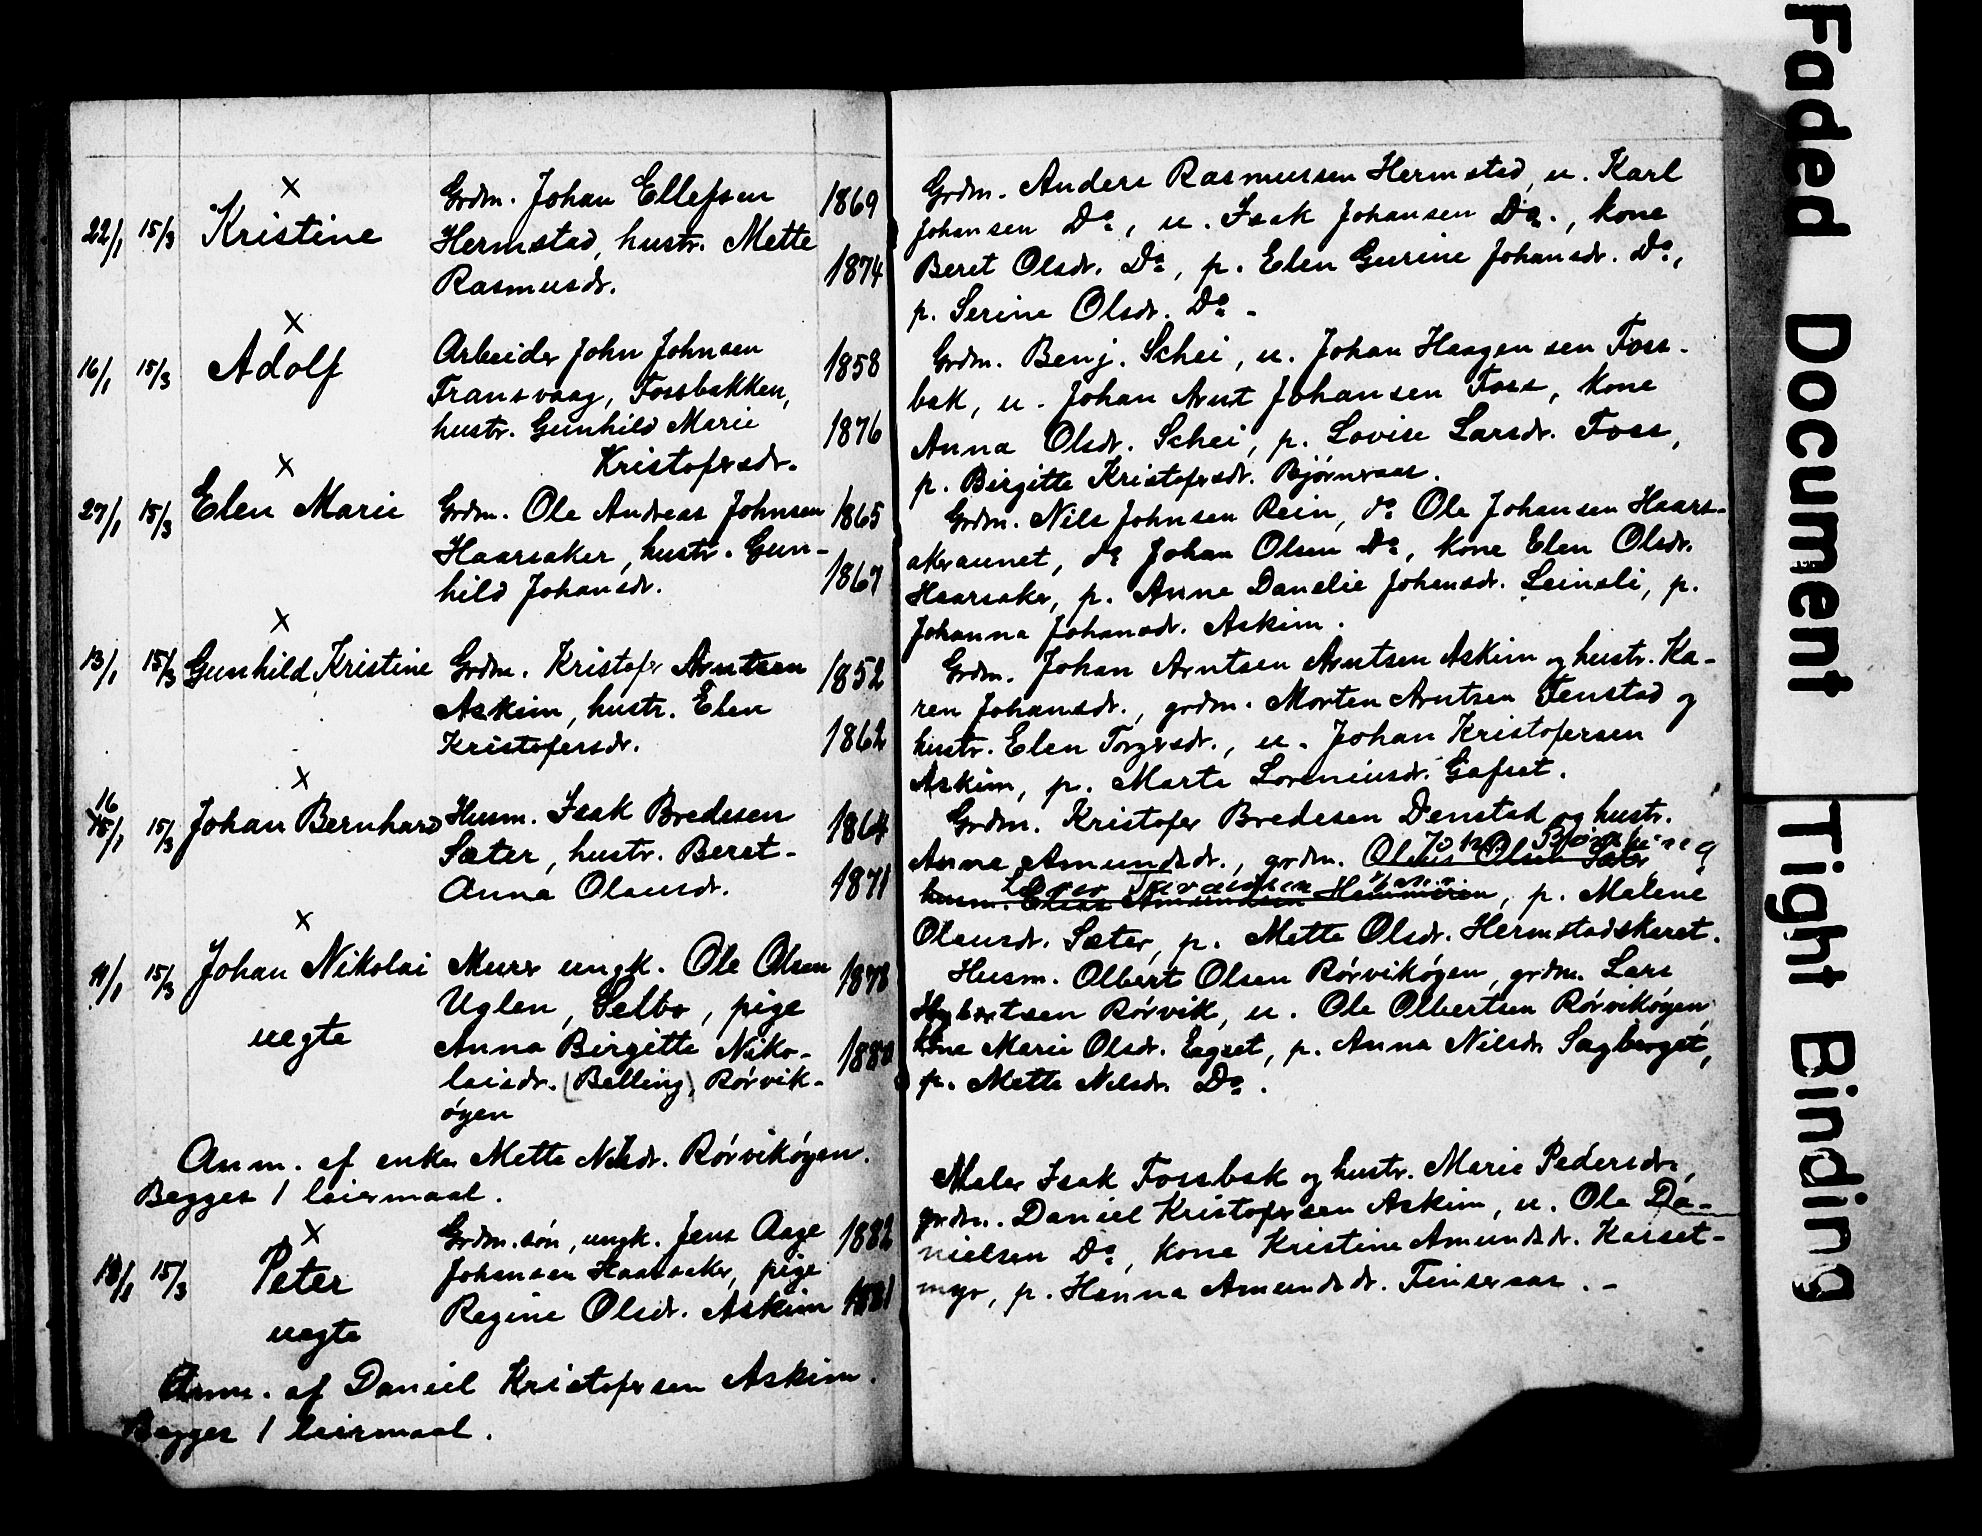 22/1 15/3 Kristine
Grdm. Johan Ellefsen
Hermstad, hustr. Mette
Rasmusdr.
1869
1874
Grdm. Anders Rasmussen Hermstad, u. Karl
Johansen Do, u. Isak Johansen Do., kone
Beret Olsdr. Do, p. Elen Gurine Johansdr. Do,
p. Serine Olsdr. Do -
16/1 15/3 Adolf
Arbeider John Johnsen
Transvaag, Fossbakken,
hustr. Gunhild Marie
Kristofersdr.
1858
1876
Grdm. Benj. Schei, u. Johan Haagensen Foss-
bak, u. Johan Arnt Johansen Foss, kone
Anna Olsdr. Schei, p. Lovise Larsdr. Foss,
p. Birgitte Kristofersdr. Bjørneraas.
27/1 15/3 Elen Marie
Grdm. Ole Andreas Johnsen
Haarsaker, hustr. Gun-
hild Johansdr.
1865
1867
Grdm. Nils Johnsen Rein, do Ole Johansen Haars-
akeraunet, do Johan Olsen Do, kone Elen Olsdr.
Haarsaker, p. Anne Danelie Johansdr. Leinsli, p.
Johanna Johansdr. Askim.
13/1 15/3 Gunhild Kristine
Grdm. Kristofer Arntsen
Askim, hustr. Elen
Kristofersdr.
1852
1862
Grdm. Johan Arntsen Arntsen Askim og hustr. Ka-
ren Johansdr., grdm. Morten Arntsen Fenstad og
hustr. Elen Torgersdr., u. Johan Kristofersen
Askim, p. Marte Loreniusdr. Gafset.
16
15/1 15/3 Johan Bernhard
Husm. Isak Bredesen
Sæter, hustr. Beret-
Anna Olausdr.
1864
1871
Grdm. Kristofer Bredesen Denstad og hustr.
Anna Amundsdr., grdm. Olaus Olsen Sæter
husm. Elias Amundsen Hammeren, p. Malene
Olausdr. Sæter, p. Mette Olsdr. Hermstadskeret.
11/1 15/3 Johan Nikolai
uegte
Murer ungk. Ole Olsen
Uglen, Selbo, pige
Anna Birgitte Niko-
laisdr. (Belling) Rørvik-
øgen
1878
1880
Husm. Olbert Olsen Rørvikøgen, grdm. Lars
Hybertsen Rørvik, u. Ole Olbertsen Rørvikøgen,
kone Marie Olsdr. Eegset, p. Anna Nilsdr. Sagberget,
p. Mette Nilsdr. Do.
Anm. af enke Mette Nilsdr. Rørvikøgen.
Begges 1 leiermaal.
18/1 15/3 Peter
uegte
Grdm.søn, ungk. Jens Aage
Johansen Haarsaker, pige
Regine Olsdr. Askim
1882
1881
Maler Isak Fossbak og hustr. Marie Pedersdr.,
grdm. Daniel Kristofersen Askim, u. Ole Da-
nielsen Do, kone Kristine Amundsdr. Karset-
myr, p. Hanna Amundsdr. Finseraas. -
Anm. af Daniel Kristofersen Askim.
Begges 1 leiermaal.
Faded Document
Tight Binding